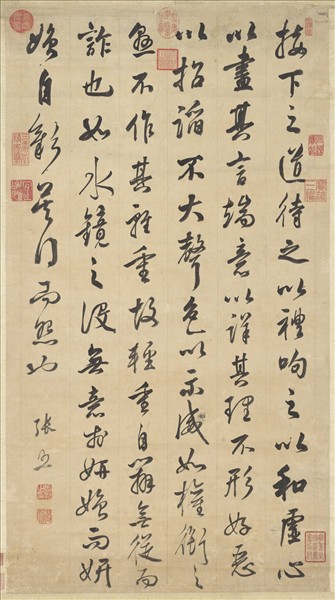 接下之道待之以禮呴之以和虛心
以盡其言端意以詳其理不形好惡
以招諂不大聲色以示威如權衡之
懸不作其輕重故輕重自辨無從而
詐也如水鏡之設無意於妍媸而妍
媸自彰莫得而怨也 張照